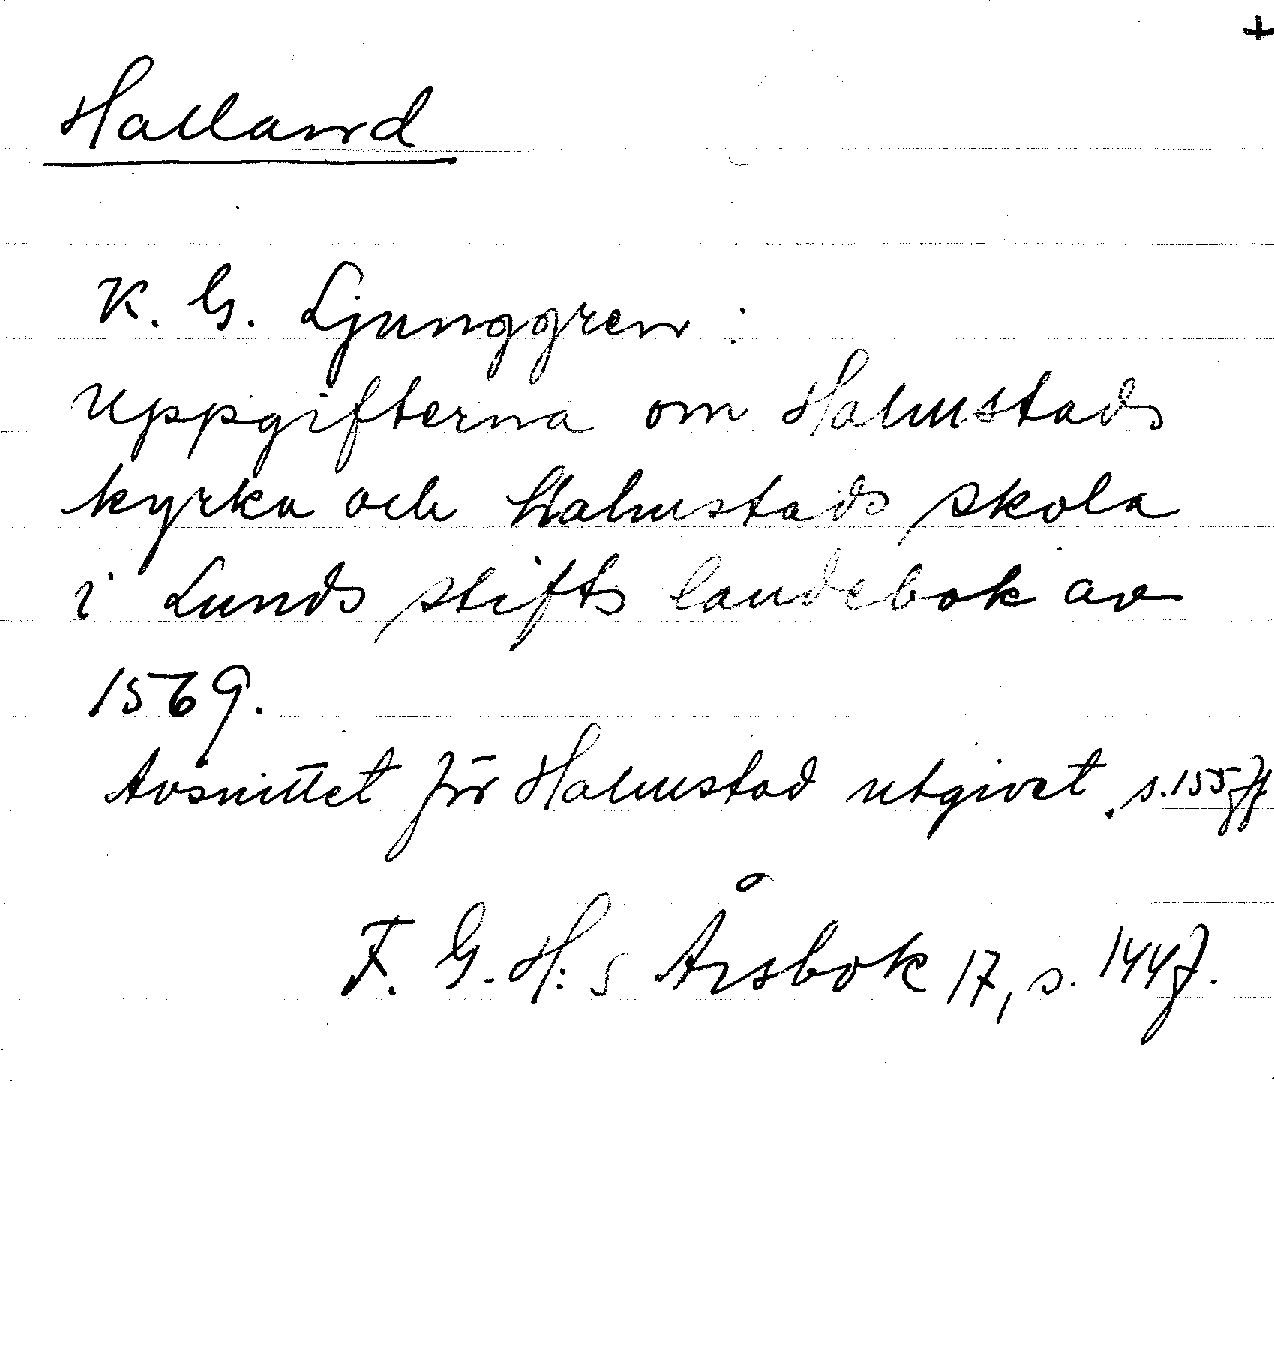 +
Halland
K. G. Ljunggren:
Uppgifterna om Halmstads
kyrka och Halmstads skola
i Lunds stifts landebok av
1569.
Avsnittet för Halmstad utgivet. s. 155 ff
F. G. H:s Årsbok 17, s. 144 f.